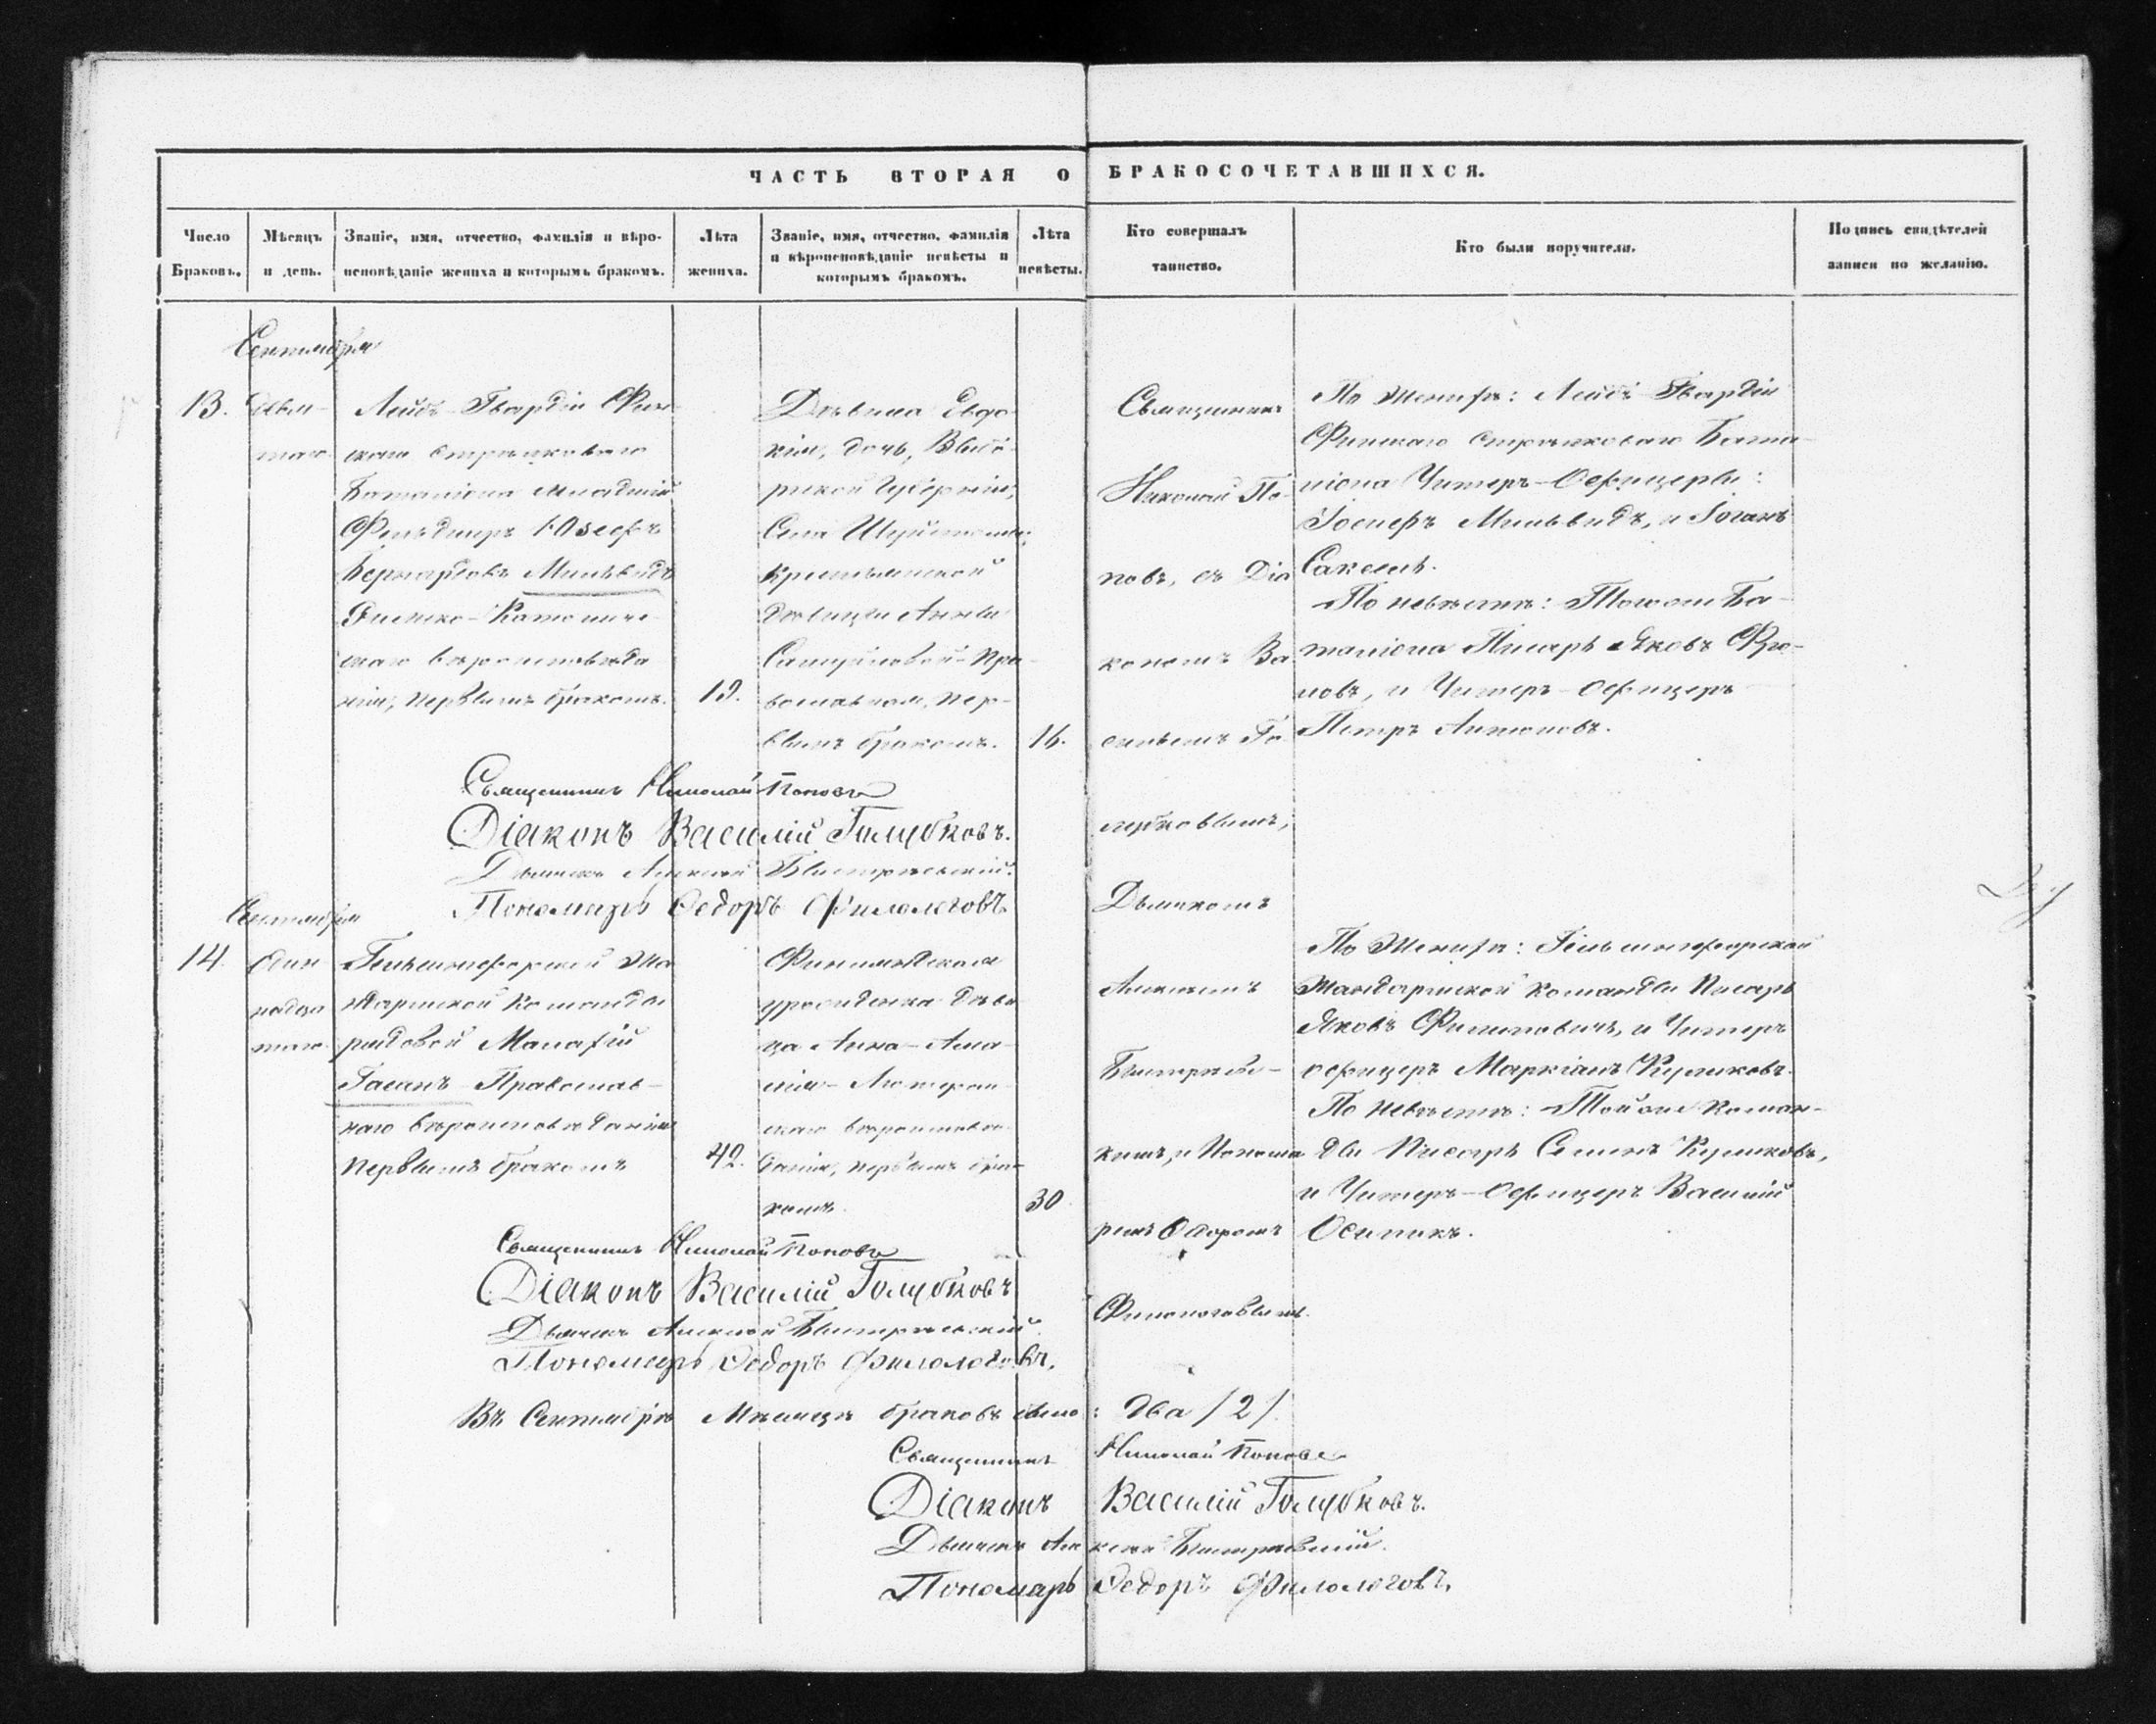 ЧАСТЬ ВТОРАЯ О БРАКОСОЧЕТАВШИХСЯ.
Число Браковъ.
Мѣсяцъ и день.
Званіе, имя, отчество, фамилія и вѣро-
исповѣданіе жениха и которымъ бракомъ.
Лѣта жениха.
Званіе, имя, отчество, фамилія
и вѣроисповѣданіе невѣсты и
которымъ бракомъ.
Лѣта невѣсты.
Кто совершалъ
таинство.
Кто были поручители.
Подпись свидѣтелей
записи по желанію.
Сентября
13.
Девя-
таго
Лейбъ-Гвардіи Фин-
скаго Стрѣлковаго
Баталіона младшій
Фельдшеръ Юзефъ
Бернардовъ Мильвидъ
Римско-Католиче-
скаго вѣроисповѣда-
нія, первымъ бракомъ.
19.
Дѣвица Евдо-
кія, дочь, Выбо-
ргской Губерніи,
Села
Крестьянской
дѣвицы Анны
Самуйловой-Пра-
вославнаго, пер-
вымъ бракомъ.
16.
Священникъ
Николай По-
повъ, съ Діа
кономъ Ва
сильемъ Го
лубковымъ,
Дьячкомъ
Алексѣемъ
Быстрѣев-
кимъ, и Понома
ремъ Ѳедоромъ
Филологовымъ.
По Женихѣ: Лейбъ-Гвардіи
Финскаго Стрѣлковаго Бата-
ліона Унтеръ-Офицеры:
Іосифъ Мильвидъ, и Іоганъ
Сакселъ.
По невѣстѣ: Того же Ба-
таліона Писарь Яковъ Фро-
ловъ, и Унтеръ-Офицеръ
Петръ Антоновъ.
Священникъ Николай Поповъ
Діаконъ Василій Голубковъ.
Дьячекъ Алексѣй Быстрѣевскій.
Пономарь Ѳедоръ Филологовъ
Сентября
14.
Один
надца
таго
Гельсингфорской Жа
ндармской Команды
рядовой Малахій
Гасанъ-Православ-
наго вѣроисповѣданія
первымъ бракомъ
42.
Финляндская
уроженка дѣви
ца Анна-Ама-
лія-Лютеран
скаго вѣроисповѣ
данія, первымъ бра-
комъ.
30
По Женихѣ: Гельсингфорской
Жандармской Команды Писарь
Яковъ Филиповичъ, и Унтеръ
офицеръ Маркіанъ Куликовъ.
По невѣстѣ: Той же Коман-
ды Писарь Семенъ Куликовъ,
и Унтеръ-Офицеръ Василій
Осипикъ.
Священникъ Николай Поповъ
Діаконъ Василій Голубковъ
Дьячекъ Алексѣй Быстрѣевскій.
Пономарь Ѳедоръ Филологовъ.
Въ Сентябрѣ Мѣсяцѣ браковъ было: два /2/.
Священникъ Николай Поповъ
Діаконъ Василій Голубковъ.
Дьячекъ Алексѣй Быстрѣевскій.
Пономарь Ѳедоръ Филологовъ.